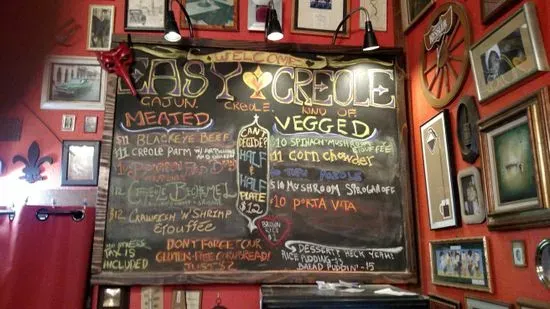 WELCOME
EASY CREOLE
CAJUN. CREOLE. KIND OF
MEATED
$11 BLACKEYE BEEF
$11 CREOLE PARM
$12 CRAWFISH W SHRIMP
ETOUFFÉE
NO OTHERS
TAX IS
INCLUDED
DON'T FORGET OUR
GLUTEN-FREE CORNBREAD!
JUST $2
CAN'T
DECIDE?
HALF
&
HALF
PLATE
$12
BROWN
RICE
VEGGED
10 SPINACH MUSHROOM
ETOUFFEE
11 CORN CHOWDER
$10 MUSHROOM STROGANOFF
$10 PORTA VITA
DESSERT? HECK YEAH!
RICE PUDDING
BREAD PUDDIN'